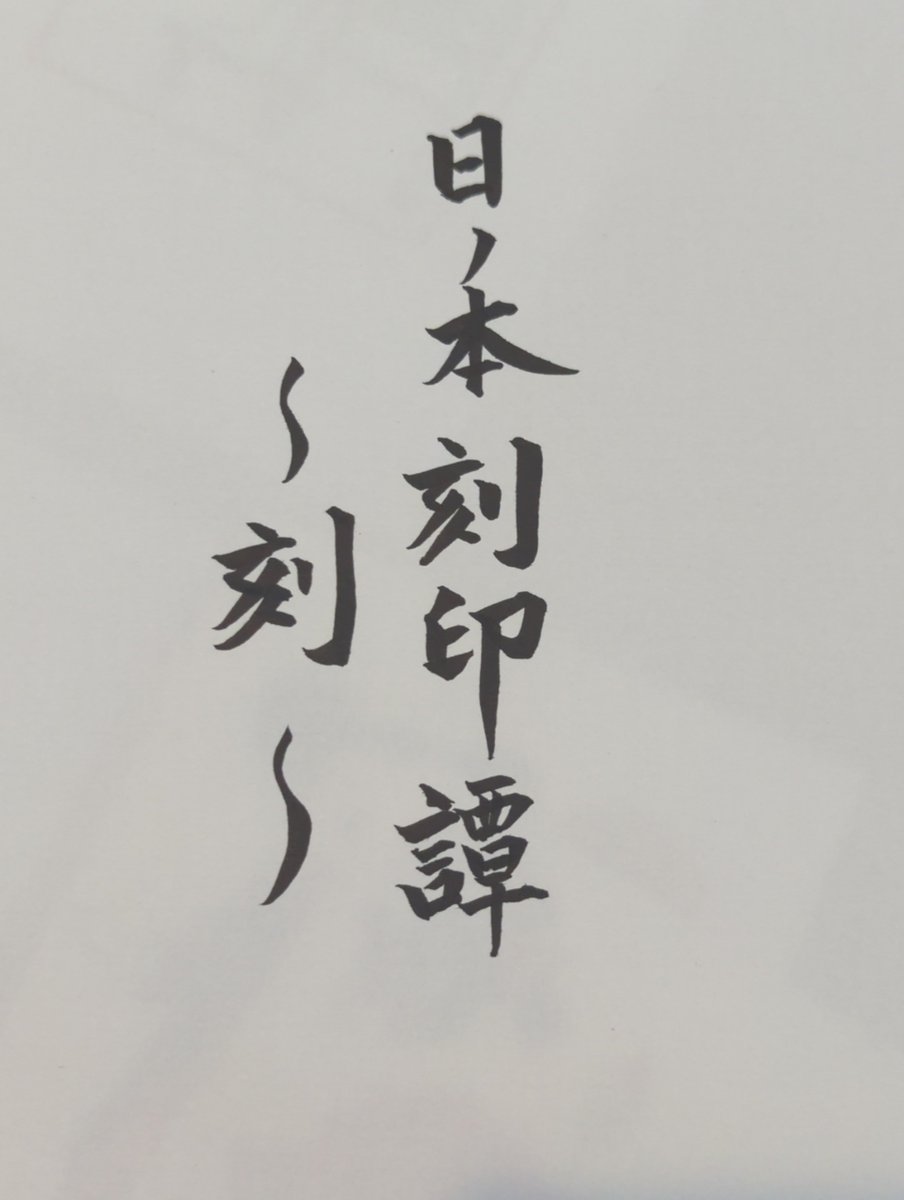 日ノ本刻印譚
〜刻〜